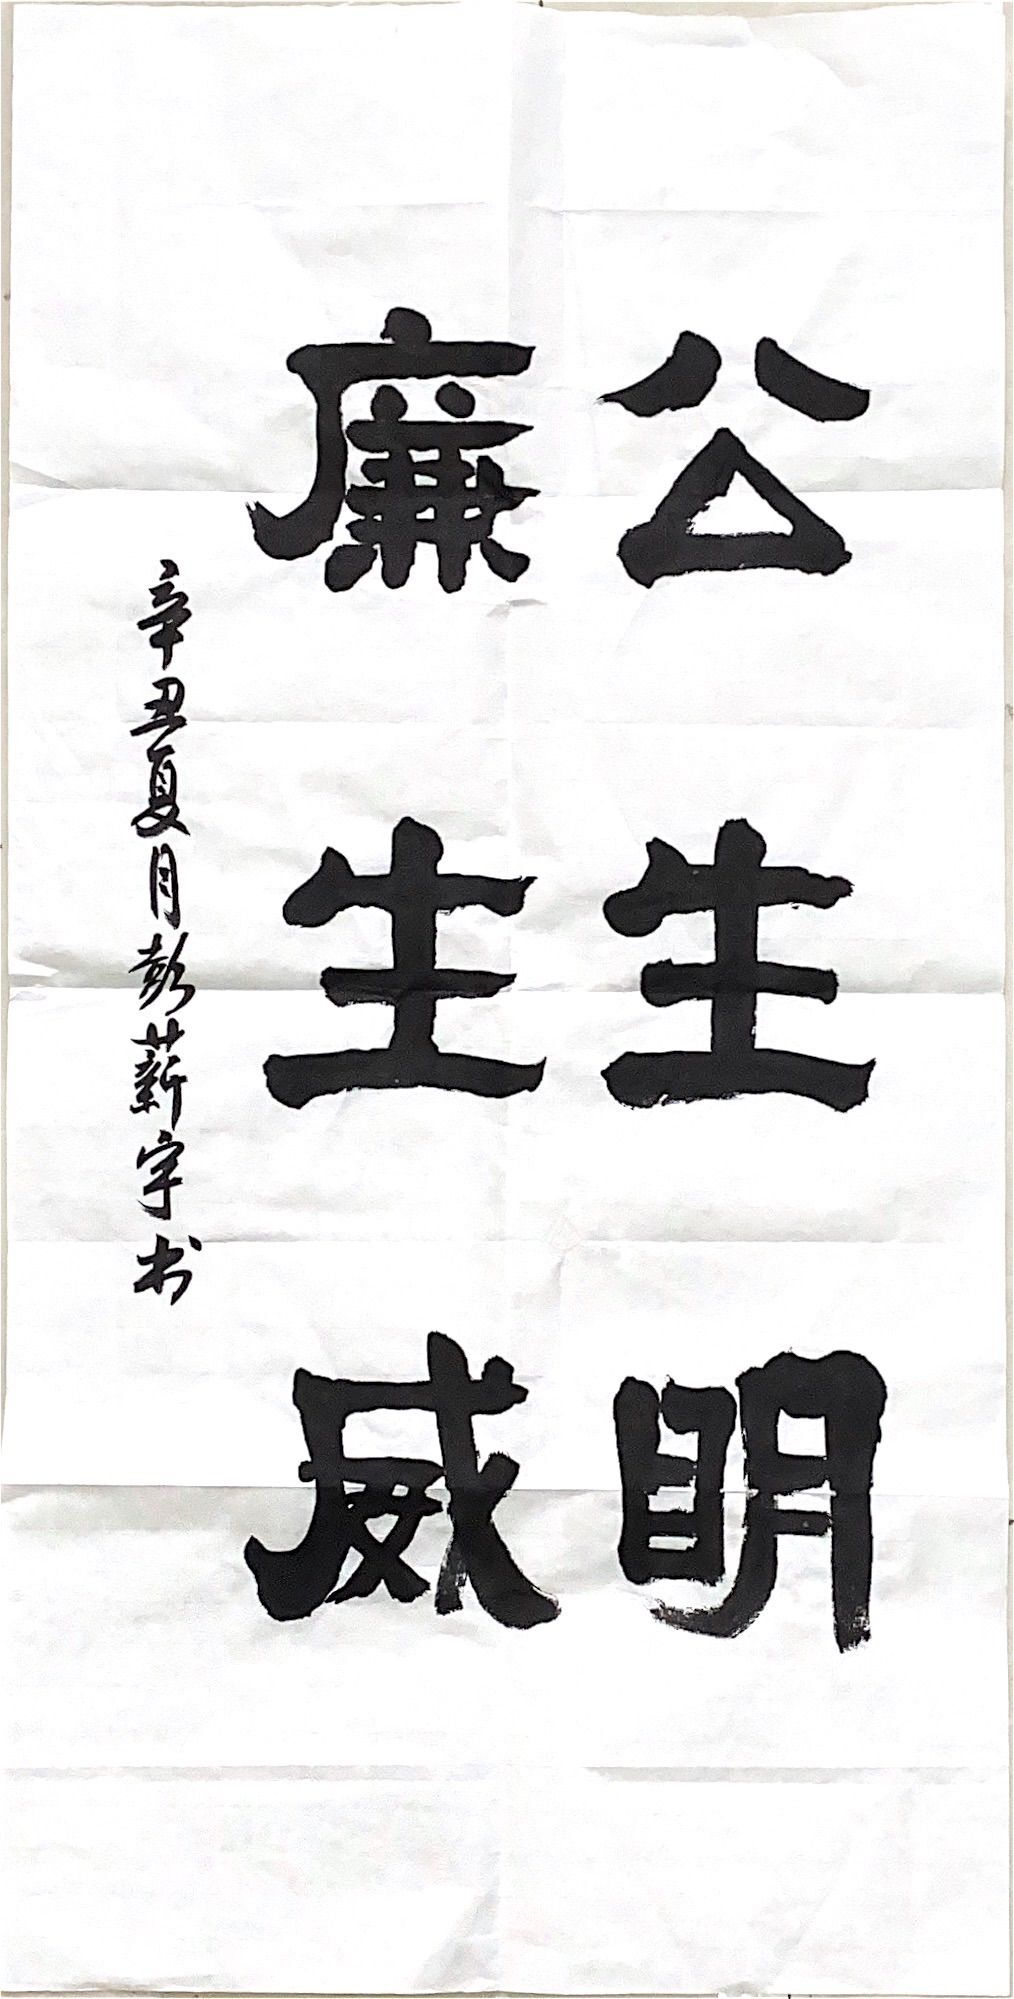 公生明
廉生威
辛丑夏月彭薪宇书